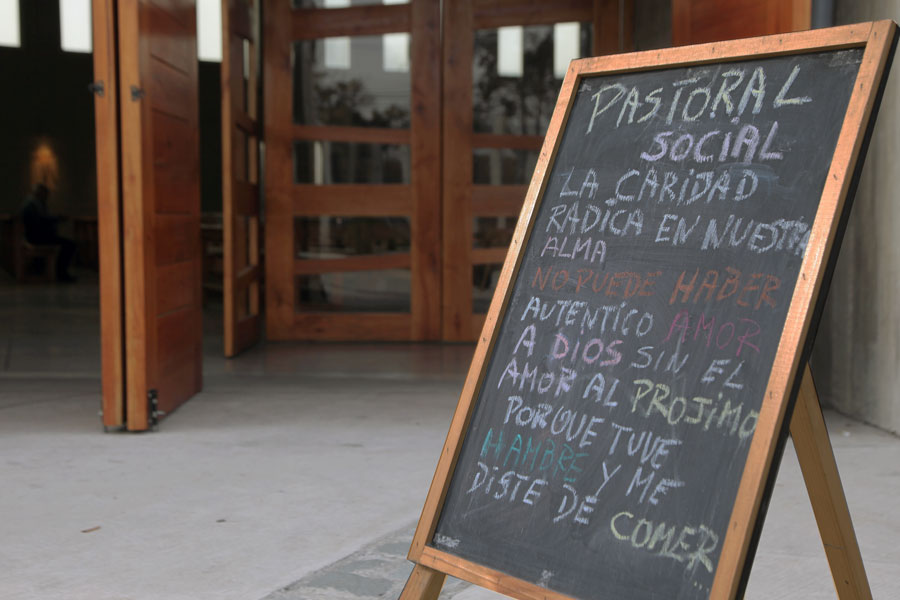 PASTORAL
SOCIAL
LA CARIDAD
RADICA EN NUESTRA
ALMA
NO PUEDE HABER
AUTENTICO AMOR
A DIOS SIN EL
AMOR AL PROJIMO
PORQUE TUVE
HAMBRE Y ME
DISTE DE COMER...